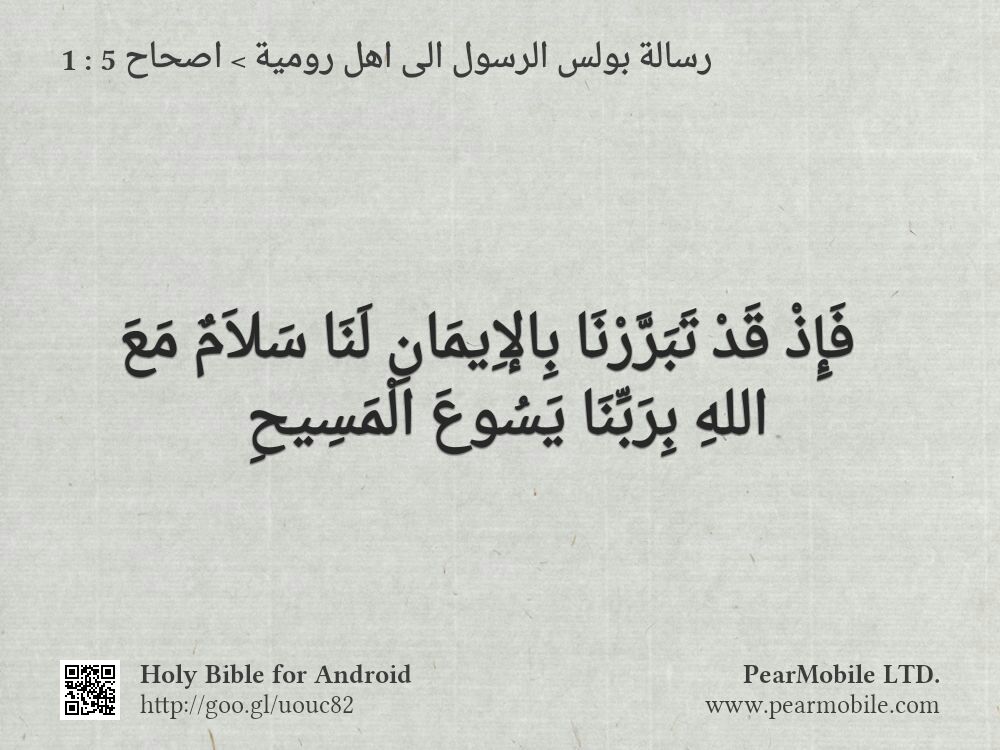 رسالة بولس الرسول الى اهل رومية > اصحاح 5 : 1
فَإِذْ قَدْ تَبَرَّرْنَا بِالإِيمَانِ لَنَا سَلاَمٌ مَعَ
اللهِ بِرَبِّنَا يَسُوعَ الْمَسِيحِ
Holy Bible for Android
http://goo.gl/uouc82
PearMobile LTD.
www.pearmobile.com